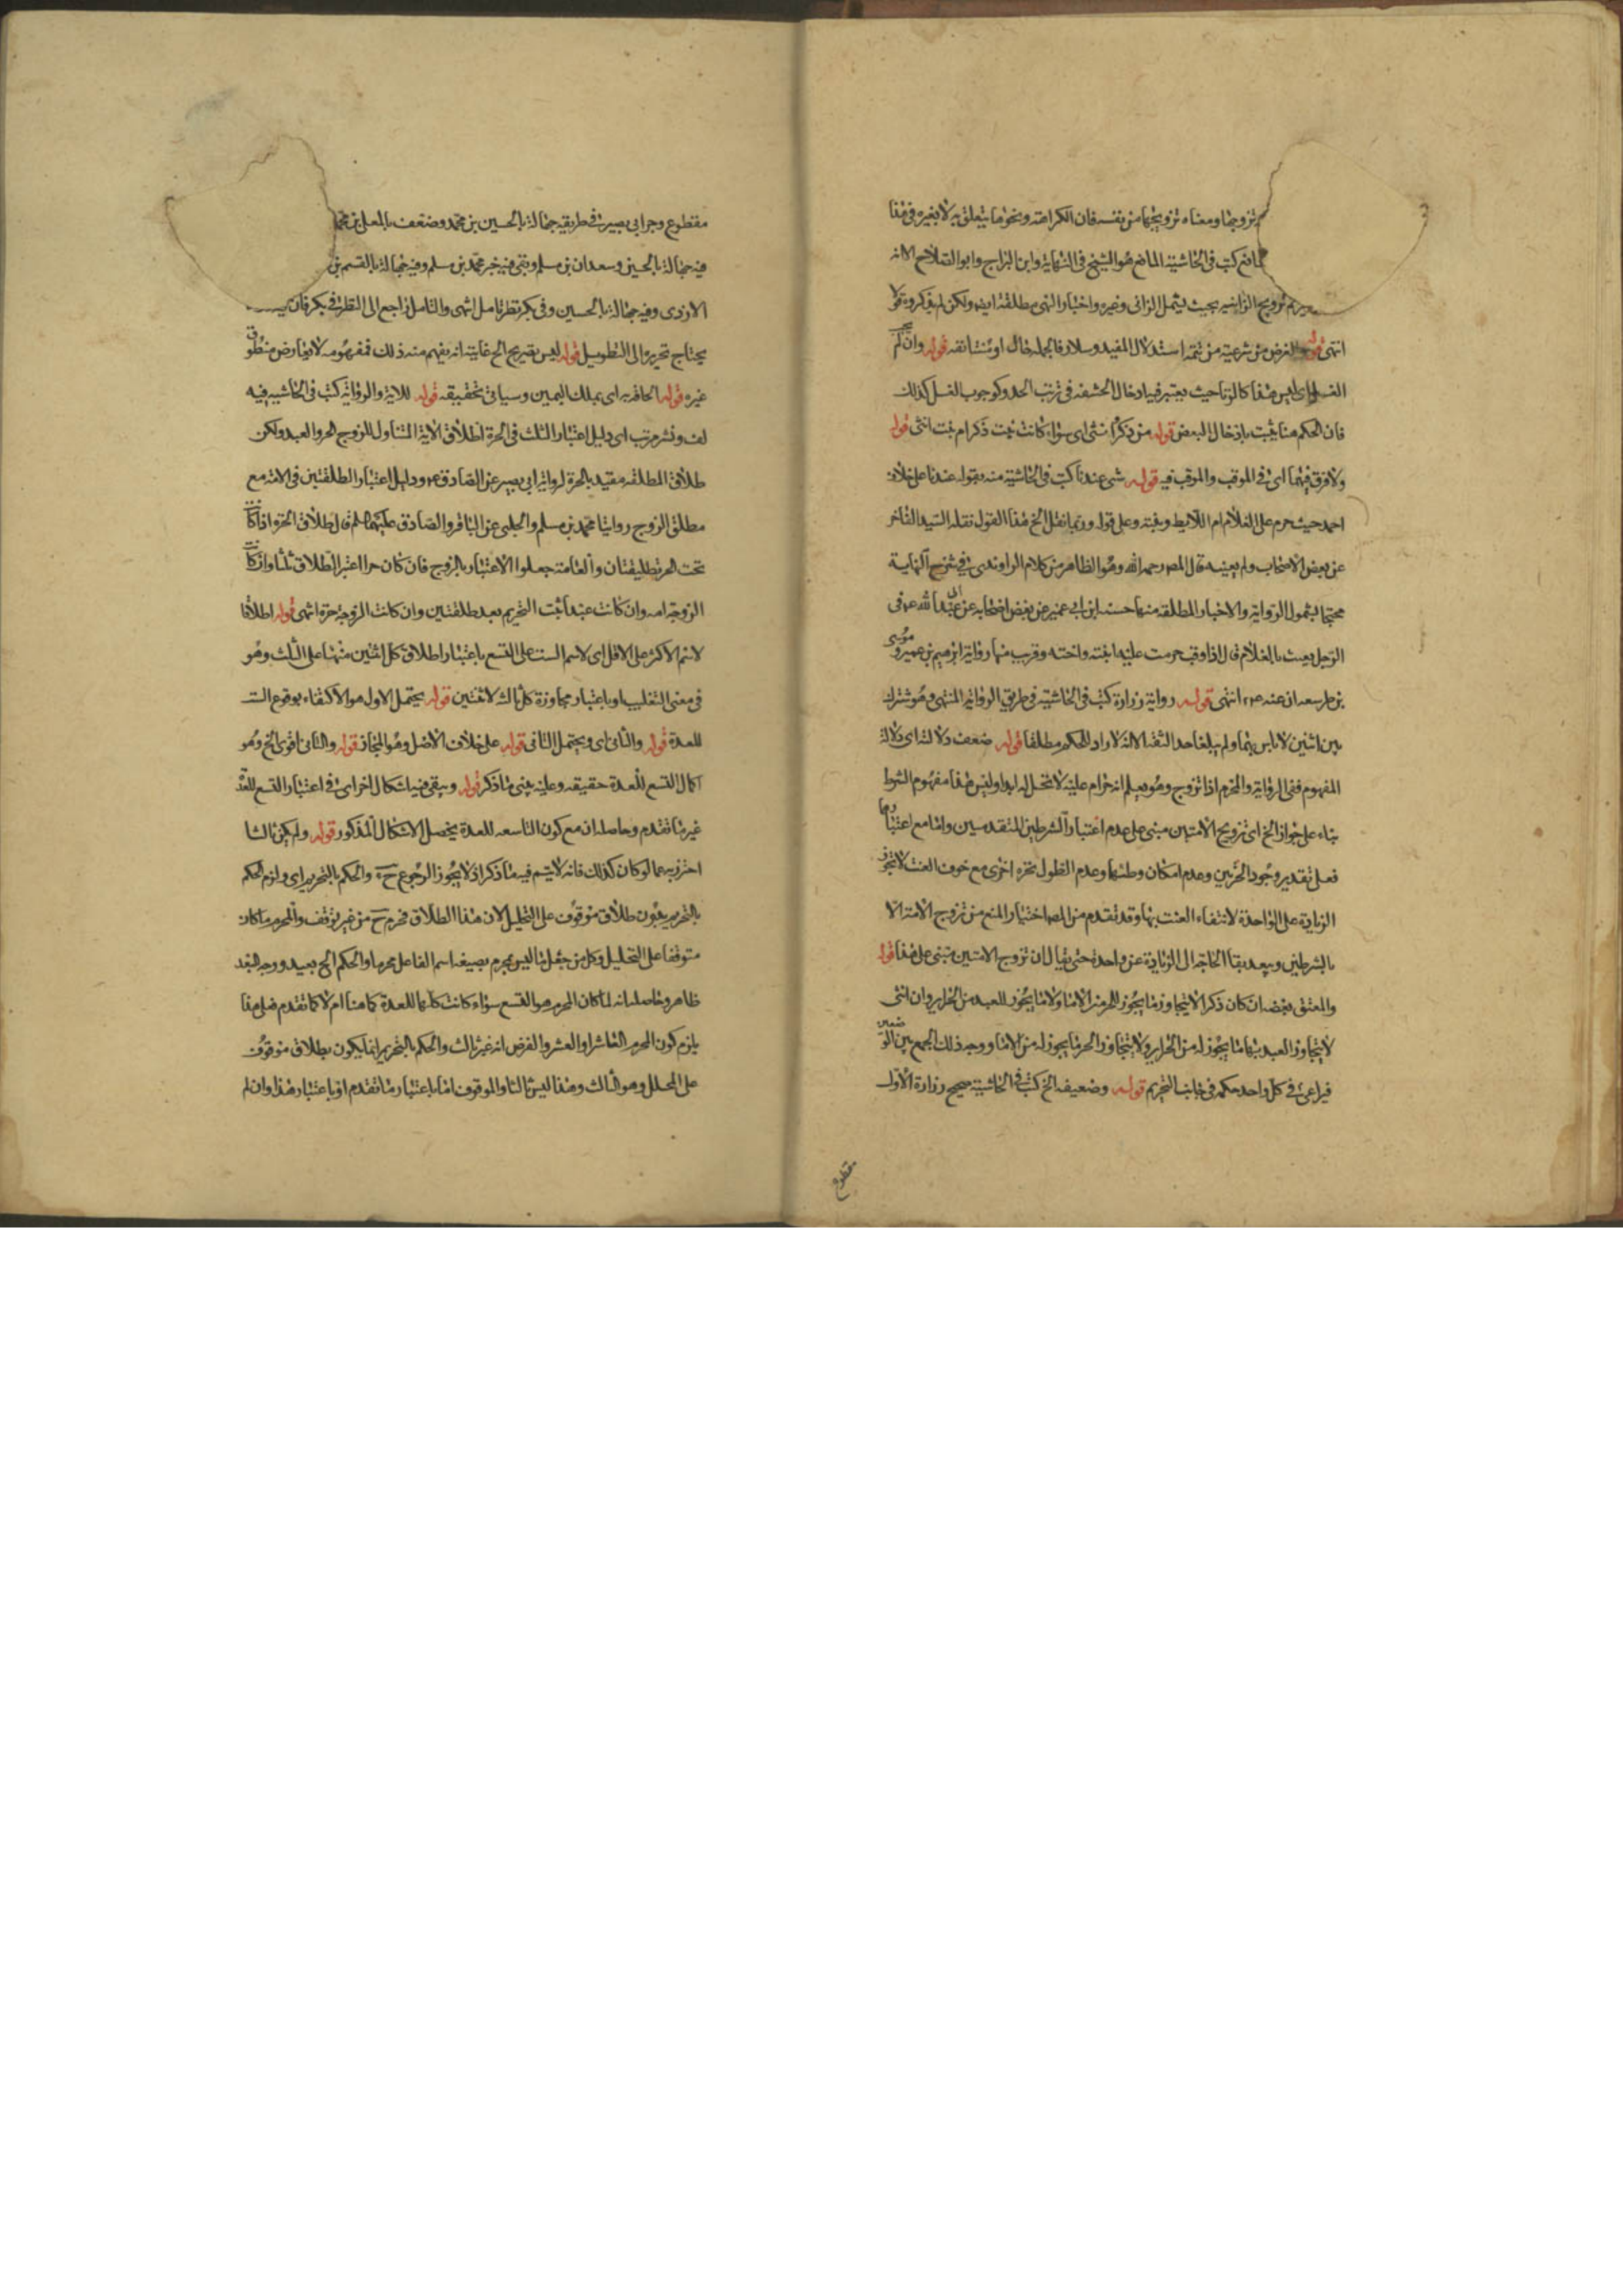 تزويجها ومعناه تزويجها من نفسه فان الكراهة ونحوها يتعلق به لا بغيره في هذا
المانع كتب في الحاشية المانع هو الشيخ في النهاية وابن البراج وابو الصلاح الا انه
تزويج الزانية بحيث يشمل الزاني وغيره واختار النهي مطلقة ايض ولكن لم يذكروه
انتهى قوله الغرض من شرعيته من تتمة استدلال المفيد وسلار فالجملة حال او مستأنفة قوله وان لم
الغسل اي ليس هذا كالزنا حيث يعتبر فيه ادخال الحشفة في ترتب الحد وكوجوب الغسل كذلك
فان الحكم هنا يثبت بادخال البعض قوله من ذكر او انثى اي سواء كانت بنت ذكر ام بنت انثى قوله
ولا فرق فيهما اي في الموقب والموقب فيه قوله شيء عندنا كتب في الحاشية منه بقوله عندنا على خلاف
احمد حيث حرم على الغلام ام اللايط وبنته وعلى قوله وربما نقل الخ هذا القول نقله السيد الفاخر
عن بعض الاصحاب ولم يعينه قال المص رحمه الله وهو الظاهر من كلام الراوندي في شرح النهاية
محتجا بشمول الرواية والاخبار المطلقة منها حسنة ابن ابي عمير عن بعض اصحابه عن ابي عبد الله ع في
الرجل يعبث بالغلام قال اذا اوقب حرمت عليه ابنته واخته وقريب منها رواية ابراهيم بن عمير وموسى
بن سعدان عنه ع انتهى قوله رواية زرارة كتب في الحاشية في طريق الرواية المثنى وهو مشترك
بين اثنين لا باس بهما ولم يبلغا حد الثقة الا انه لا راد للحكم مطلقا قوله ضعف دلالته اي دلالة
المفهوم ففي الرواية والمحرم اذا تزوج وهو يعلم انه حرام عليه لا تحل له ابدا وليس هذا مفهوم الشرط
بناء على جواز الخ اي تزويج الامتين مبني على عدم اعتبار الشرطين المتقدمين واما مع اعتبارهما
فعلى تقدير وجود الحرتين وعدم امكان وطئهما وعدم الطول بحرة اخرى مع خوف العنت لا تجوز
الزيادة على الواحدة لانتفاء العنت بها وقد تقدم من المص اختيار المنع من تزويج الامة الا
بالشرطين ويبعد بقاء الحاجة الى الزيادة عن واحدة حتى يقال ان تزوج الامتين مبني على هذا قوله
والمعتق بعضه ان كان ذكرا لا يتجاوز ما يجوز للحر من الاماء ولا ما يجوز للعبد من الحراير وان انثى
لا يتجاوز العبد بها ما يجوز له من الحراير ولا يتجاوز الحر ما يجوز له من الاماء ووجه ذلك الجمع بين
فيراعى في كل واحد حكمه في جانب التحريم قوله وضعيفه الخ كتب في الحاشية صحيح زرارة الاول
مقطوع
مقطوع وخبر ابي بصير في طريقه جهالة بالحسين بن محمد وضعف بالمعلى بن محمد
فيه جهالة بالحسين وسعدان بن مسلم وبقي فيه خبر محمد بن مسلم وفيه جهالة بالقسم بن
الازدي وفيه جهالة بالحسين وفي بكر نظر تامل انتهى والتامل راجع الى النظر في بكر فان
يحتاج تحريره الى التطويل قوله ليس بصريح الخ غايته انه يفهم منه ذلك فمفهومه لا يعارض منطوق
غيره قوله الحاقه به اي بملك اليمين وسياتي تحقيقه قوله للاية والرواية كتب في الحاشية فيه
لف ونشر مرتب اي دليل اعتبار الثلث في الحرة اطلاق الاية المتناول للزوج الحر والعبد ولكن
طلاق المطلقة مقيد بالحرة لرواية ابي بصير عن الصادق ع ودليل اعتبار الطلقتين في الامة مع
مطلق الزوج روايتا محمد بن مسلم والحلبي عن الباقر والصادق عليهما السلم قال طلاق الحرة اذا كانت
تحت الحر تطليقتان والعامة جعلوا الاعتبار بالزوج فان كان حرا اعتبر الطلاق ثلثا وان كانت
الزوجة امة وان كانت عبدا ثبت التحريم بعد طلقتين وان كانت الزوجة حرة انتهى قوله اطلاقا
لاسم الاكثر على الاقل اي لاسم الست على التسع باعتبار اطلاق كل اثنين منها على الثلث وهو
في معنى التغليب او باعتبار مجاوزة كل ثالث لاثنتين قوله يحتمل الاول هو الاكتفاء بوقوع الست
للعدة قوله والثاني اي ويحتمل الثاني قوله على خلاف الاصل وهو المجاز قوله والثاني اقوى الخ وهو
اكمال التسع للعدة حقيقة وعليه يبنى ما ذكر قوله ويبقى فيه اشكال اخر اي في اعتبار التسع للعدة
غير ما تقدم وحاصله ان مع كون التاسعة للعدة يحصل الاشكال المذكور قوله ولم يكن ثالثا
احترز به عما لو كان كذلك فانه لا يتم فيه ما ذكر اذ لا يجوز الرجوع ح والحكم بالتحريم اي ولزم الحكم
بالتحريم بدون طلاق موقوف على التحليل لان هذا الطلاق محرم ح من غير توقف والمحرم ما كان
متوقفا على التحليل وكل من جعل ما ليس بمحرم بصيغة اسم الفاعل محرما والحكم الخ بعيد ووجه البعد
ظاهر وحاصله انه لما كان المحرم هو التسع سواء كانت كلها للعدة كما هنا ام لا كما تقدم فعلى هذا
يلزم كون المحرم العاشر او العشر والفرض انه غير ثالث والحكم بالتحريم انما يكون بطلاق موقوف
على المحلل وهو الثالث وهذا ليس ثالثا والموقوف اما باعتبار ما تقدم او باعتبار هذا وان لم